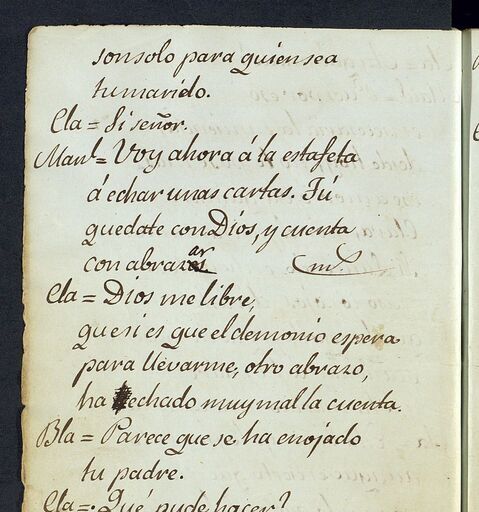 son solo para quien sea
tu marido.
Cla = Si señor.
Man.l = Voy ahora á la estafeta
á echar unas cartas. Tú
quedate con Dios, y cuenta
con abrazar
Cla = Dios me libre,
que si es que el demonio espera
para llevarme, otro abrazo,
ha echado muy mal la cuenta.
Bla = Parece que se ha enojado
tu padre.
Cla = Qué pude hacer?